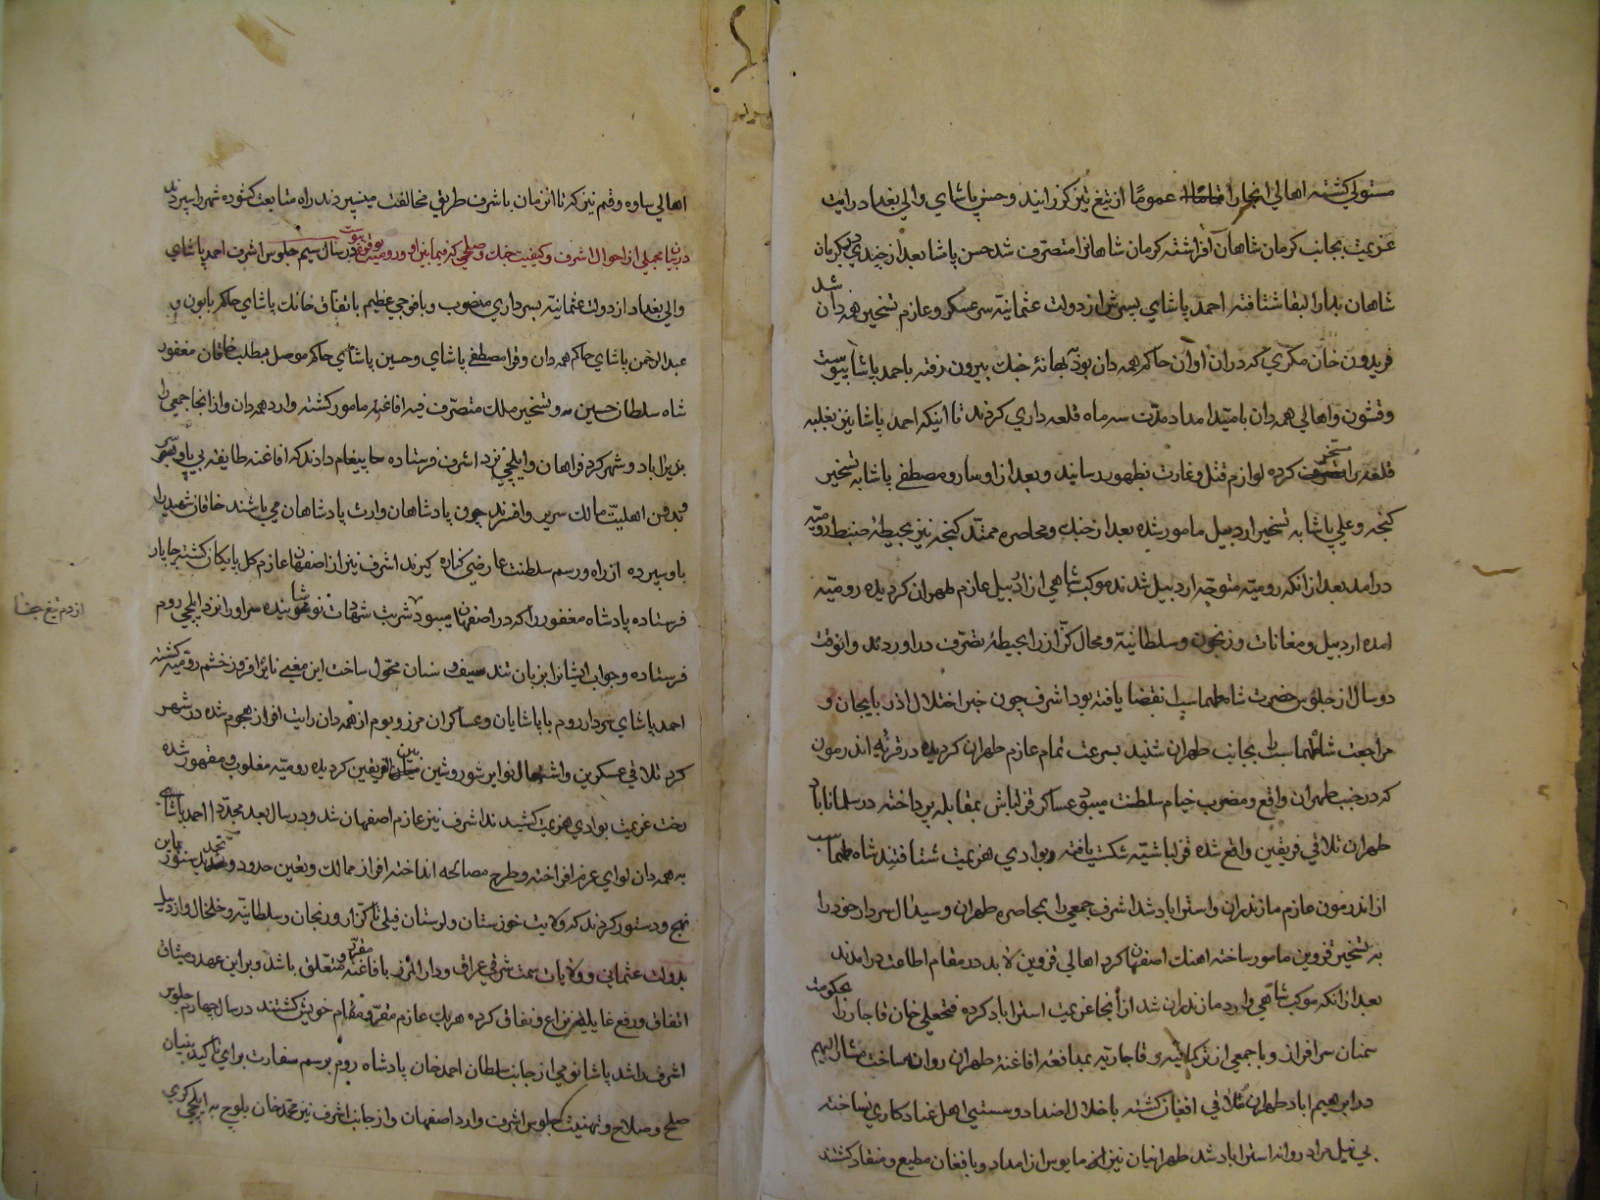 مستولی کشته اهالی انجارا عموما از تیغ تیز کذرانید و حسن پاشای والی بغداد رایت
عزیمت بجانب کرمان شاهان افراشته کرمان شاهانرا متصرف شد حسن پاشا بعد از چندی در کرمان
شاهان بدار البقا شتافته احمد پاشای پسرش از دولت عثمانیه سرعسکر و عازم تسخیر همدان شد
فریدون خان مکری که دران اوان حاکم همدان بود بهانهٔ جنك بیرون رفته باحمد پاشا پیوست
و قشون و اهالی همدان بامید امداد مدت سه ماه قلعه داری کردند تا اینکه احمد پاشا نیز بغلبه
قلعه را مسخر کرده لوازم قتل و غارت بظهور رسانید و بعد از او سارو مصطفی پاشا به تسخیر
کنجه و علی پاشا به تسخیر اردبیل مامور شده بعد از جنك و محاصره ممتد کنجه نیز بحیطهٔ ضبط رومیه
درامد بعد از انکه رومیه متوجه اردبیل شدند موکب شاهی از اردبیل عازم طهران کردیده رومیه
امده اردبیل و مغانات و زنجون و سلطانیه و محال کزاز را بحیطهٔ تصرف دراوردند و انوقت
دو سال از جلوس حضرت شاه طهماسب انقضا یافته بود اشرف چون خبر اختلال اذربایجان و
مراجعت شاه طهماسب را بجانب طهران شنید بسرعت تمام عازم طهران کردیده در قریهٔ اندرمون
که در جنب طهران واقع و مضرب خیام سلطنت میبود عساکر قزلباش بمقابله پرداخته در سلماناباد
طهران تلاقی فریقین واقع شده قزلباشیه شکست یافته و بوادی هزیمت شتافتند شاه طهماسب
از اندرمون عازم مازندران و استراباد شد اشرف جمعی را بمحاصره طهران و سیدال سردار خود را
به تسخیر قزوین مامور ساخته اهنك اصفهان کرد اهالی قزوین لابد در مقام اطاعت درامدند
بعد از انکه موکب شاهی وارد مازندران شد از انجا عزیمت استراباد کرده فتحعلی خان قاجار را بحکومت
سمنان سرافراز و با جمعی از ترکمانیه و قاجاریه بمدافعهٔ افاغنهٔ طهران روانه ساخت مشار الیهم
در ابرهیم اباد طهران تلاقی افغان کشته باخلال اضداد و سستی اهل عناد کاری نساخته
بی نیل مراد روانه استراباد شد طهرانیان نیز مایوس از امداد و با افغان مطیع و منقاد کشتند
اهالی ساوه و قم نیز که تا انزمان با اشرف طریق مخالفت میسپردند راه متابعت کشوده شهر را سپردند
در بیان مجملی از احوال اشرف و کیفیت جنك و صلحی که فیمابین او و رومیه بوقوع پیوست در سال سیم جلوس اشرف احمد پاشای
والی بغداد از دولت عثمانیه بسرداری منصوب و با فوجی عظیم باتفاق خانك پاشای حاکم بابون و
عبدالرحمن پاشای حاکم همدان و قرا مصطفی پاشای و حسین پاشای حاکم موصل بطلب خاقان مغفور
شاه سلطان حسین و تسخیر ملك متصرف فیه افاغنه مامور کشته وارد همدان و از انجا جمعی را
بدیراباد و شهر کرد فراهان و ایلچی نزد اشرف فرستاده پیغام دادند که افاغنه طایفهٔ بی پا و سر
اهلیت مالك سریر و افسرند چون پادشاهان وارث پادشاهان می باشند خاقان شهید را
باو سپرده از راه و رسم سلطنت عارضی کناره کیرند اشرف نیز از اصفهان عازم کلپایکان کشته چاپار
فرستاده پادشاه مغفور را که در اصفهان میبود شربت شهادت نوشانیده سر او را نزد ایلچی روم
فرستاده و جواب ایشانرا بزبان تند سیف و سنان محول ساخت این معنی نایره افروز خشم رومیه کشته
احمد پاشای سردار روم با پاشایان و عساکران مرز و بوم از همدان رایت افراز هجوم شده در شهر
کرد تلاقی عسکرین و اشتعال نوایر شور و شین بین الفریقین کردیده رومیه مغلوب و مقهور شده
رخت عزیمت بوادی هزیمت کشیدند اشرف نیز عازم اصفهان شد و در سال بعد مجددا احمد پاشای
به همدان لوای عزم افراخته و طرح مصالحه انداخته افراز ممالك و تعین حدود و تحدید سنور بماین
نهج و دستور کردند که ولایت خوزستان و لرستان فیلی تا کزاز و زنجان و سلطانیه و خلخال و اردبیل
بدولت عثمانی و ولایات سمت شرقی عراق و دار المرز بافاغنه مقرر و متعلق باشد و بر این عهد و میثاق
اتفاق و رفع غایلهٔ نزاع و نفاق کرده هر یك عازم مقر و مقام خویش کشتند در سال چهارم جلوس
اشرف راشد پاشا نومی از جانب سلطان احمد خان پادشاه روم برسم سفارت برای تاکید بنیان
صلح و صلاح و تهنیت جلوس اشرف وارد اصفهان و از جانب اشرف نیز محمد خان بلوچ به ایلچی کری
از دم تیغ جفا